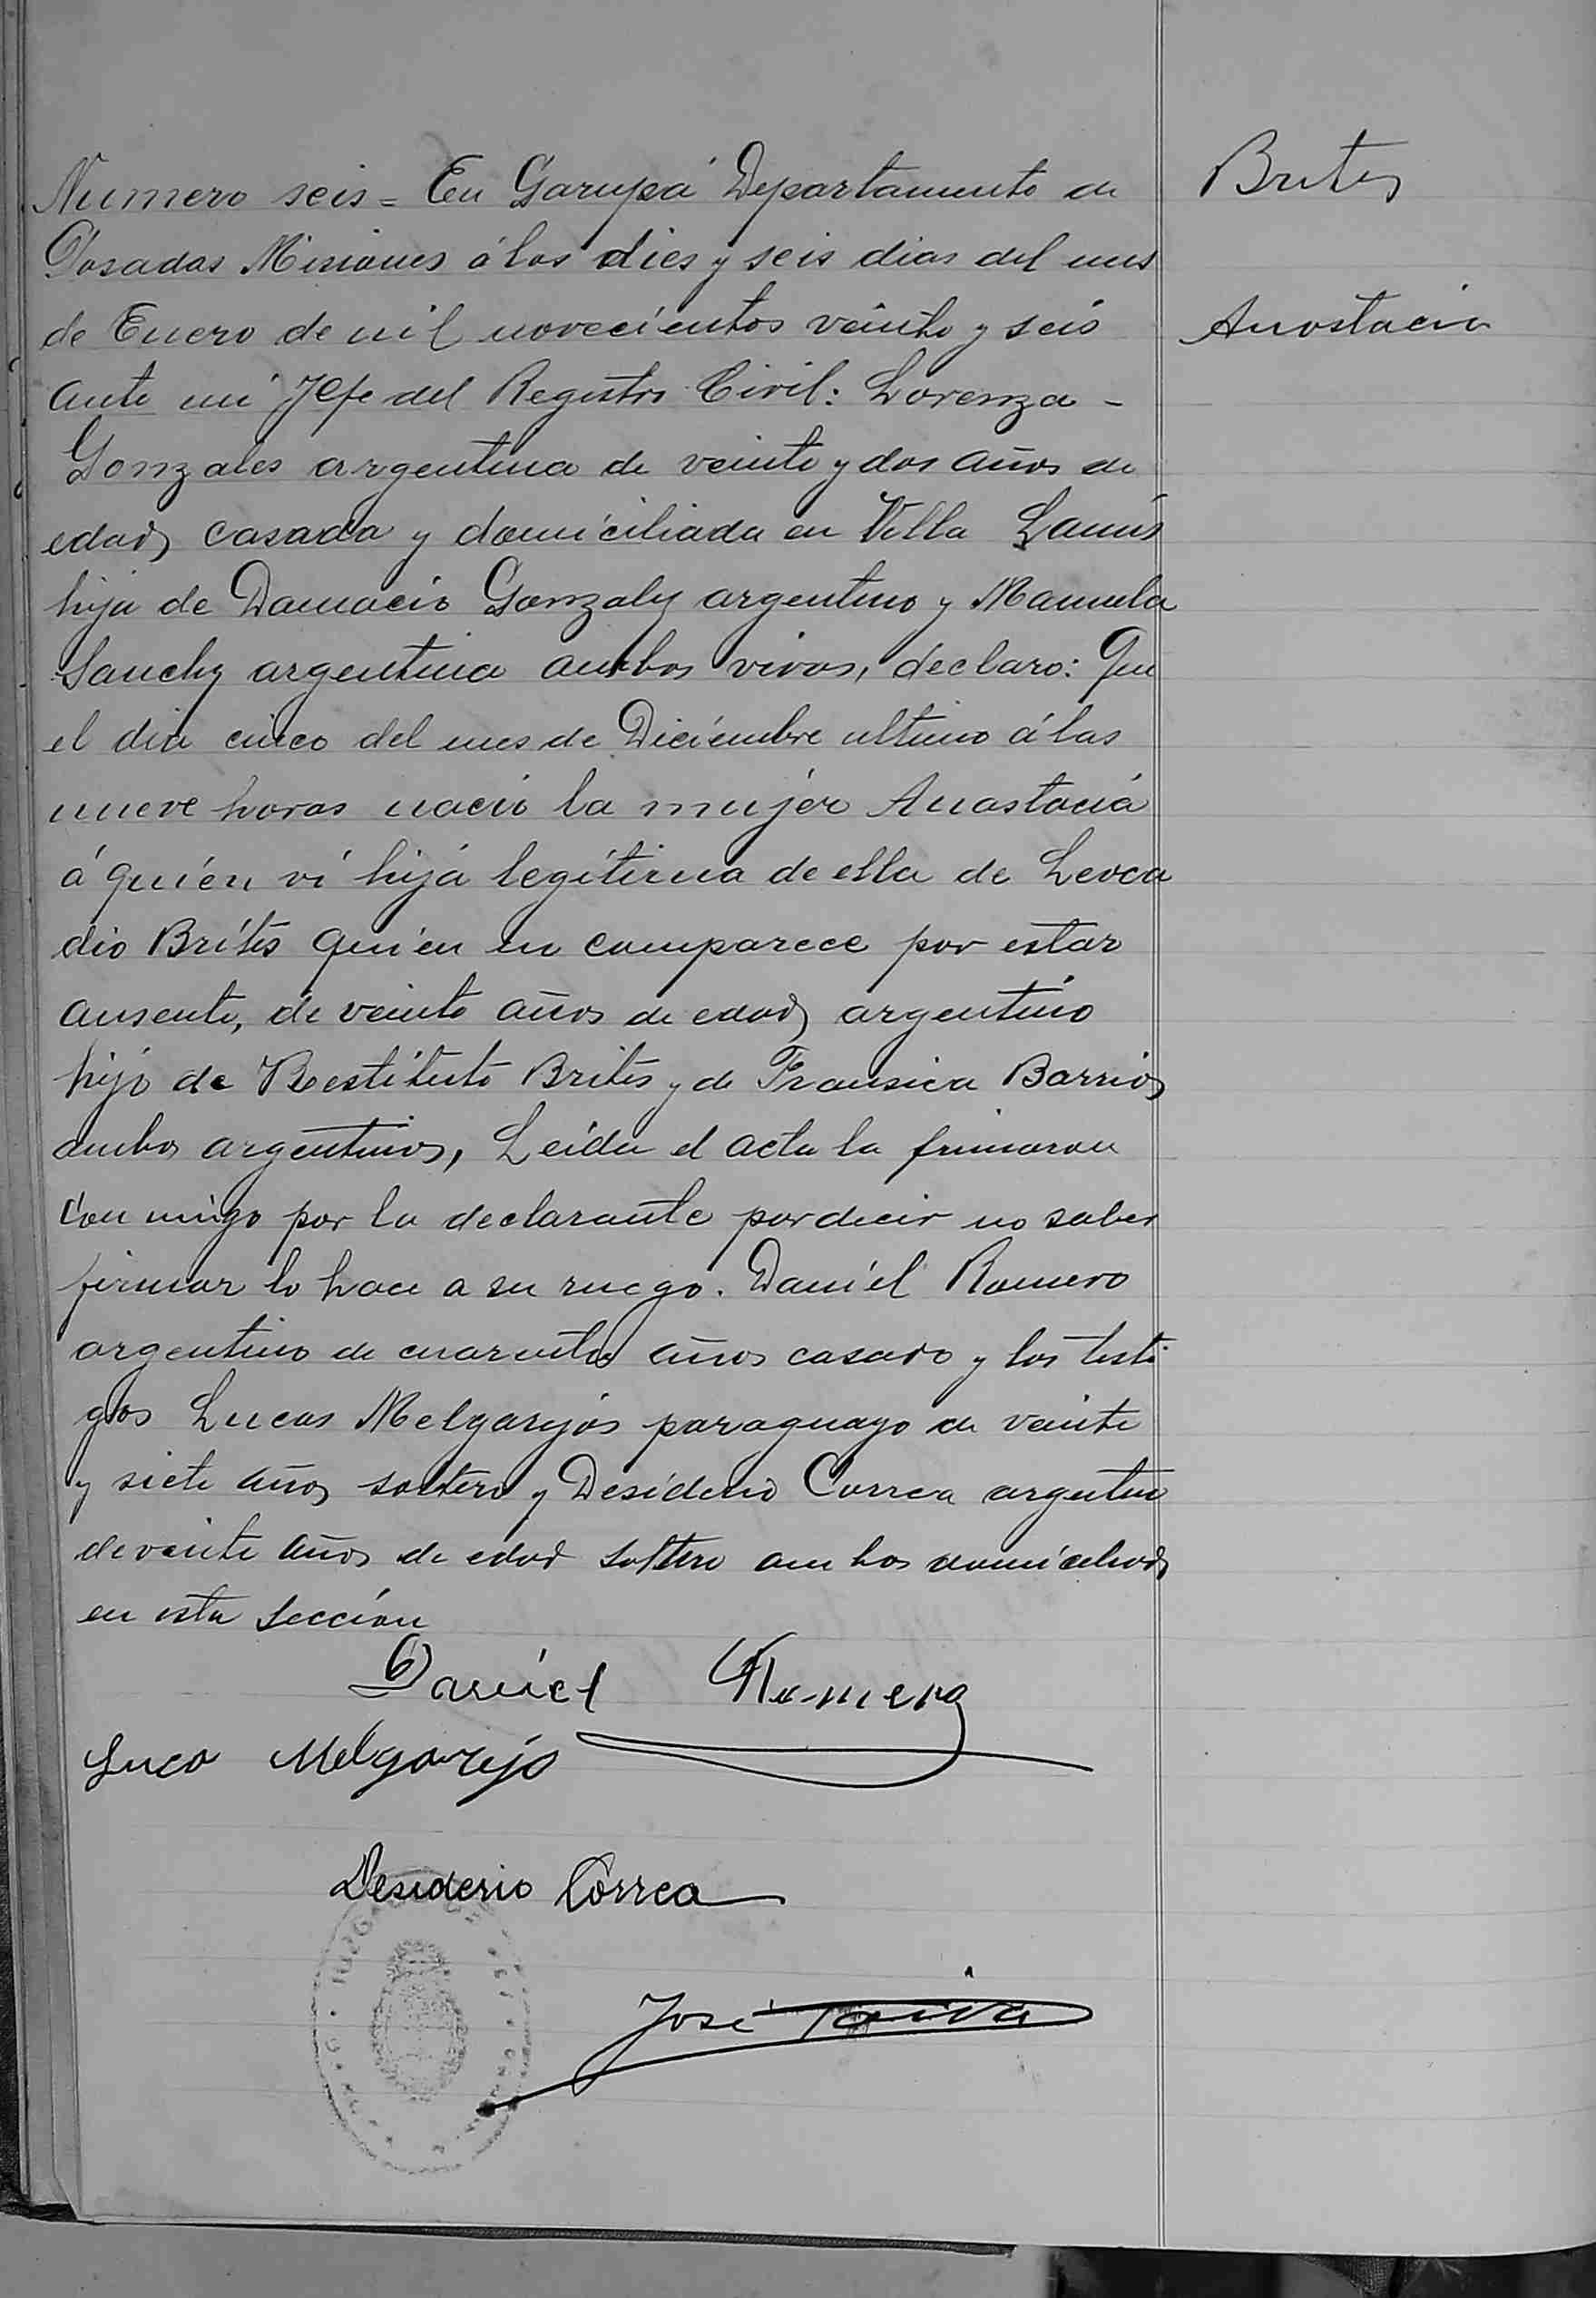 Brites
Anastacia
Numero seis = En Garupá Departamento de
Posadas Misiones á los dies y seis dias del mes
de Enero de mil novecientos veinte y seis
ante mi Jefe del Registro Civil: Lorenza -
Gonzales argentina de veinte y dos años de
edad casada y domiciliada en Villa Lanús
hija de Damacio Gonzales argentino y Manuela
Sanches argentina ambos vivos, declaro: Que
el dia cinco del mes de Diciembre ultimo á las
nueve horas nació la mujer Anastacia
á quien vi hija legitima de ella de Leoca
dio Brites quien no comparece por estar
ausente, de veinte años de edad argentino
hijo de Restituto Brites y de Fransica Barrios
ambos argentinos, Leida el acta la firmaron
con migo por la declarante por decir no saber
firmar lo hace a su ruego. Daniel Romero
argentino de cuarenta años casado y los testi
gos Lucas Melgarejos paraguayo de veinte
y siete años soltero y Desiderio Correa argentino
de veinte años de edad soltero ambos domiciliados
en esta sección
Daniel Romero
Luca Melgarejo
Desiderio Correa
José Paiva